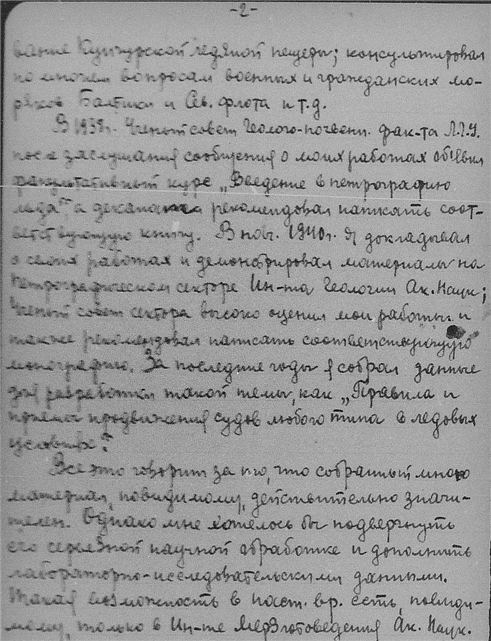 -2-
вание Кунгурской ледяной пещеры; консультировал
по многим вопросам военных и гражданских мо-
ряков Балтики и Сев. флота и т.д.
В 1939г. Ученый совет Геолого-почвенн. фак-та Л.Г.У.
после заслушания сообщения о моих работах объявил
факультативный курс „Введение в петрографию
льда" а деканат рекомендовал написать соот-
ветствующую книгу. В нояб. 1940г. я докладывал
о своих работах и демонстрировал материалы на
Петрографическом секторе Ин-та Геологии Ак. Наук;
Ученый совет сектора высоко оценил мои работы и
также рекомендовал написать соответствующую
монографию. За последние годы я собрал данные
для разработки такой темы, как „Правила и
приемы продвижения судов любого типа в ледовых
условиях".
Все это говорит за то, что собранный мною
материал, повидимому, действительно значи-
телен. Однако мне хотелось бы подвергнуть
его серьезной научной обработке и дополнить
лабораторно-исследовательскими данными.
Такая возможность в наст. вр. есть, повиди-
мому, только в Ин-те Мерзлотоведения Ак. Наук.